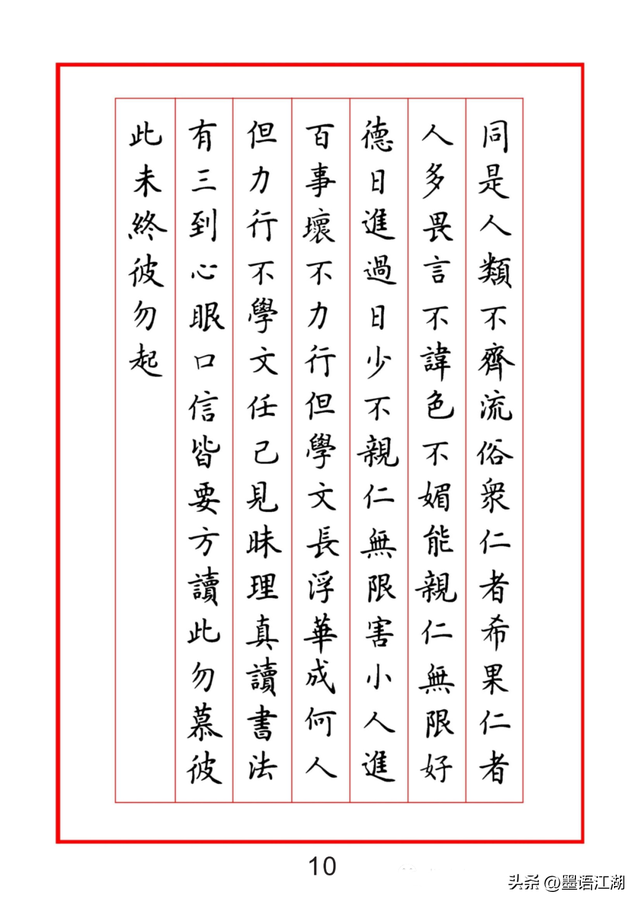 同是人類不齊流俗衆仁者希果仁者
人多畏言不諱色不媚能親仁無限好
德日進過日少不親仁無限害小人進
百事壞不力行但學文長浮華成何人
但力行不學文任己見昧理真讀書法
有三到心眼口信皆要方讀此勿慕彼
此未終彼勿起
10
头条 @墨语江湖